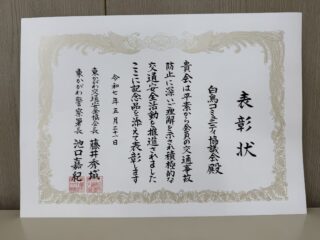 表彰状
白鳥コミュニティ協議会殿
貴会は平素から会員の交通事故
防止に深い理解を示され積極的な
交通安全活動を推進されました
ここに記念品を添えて表彰します
令和七年五月二十一日
東かがわ交通安全協会長 藤井秀城
東かがわ警察署長 池口嘉紀